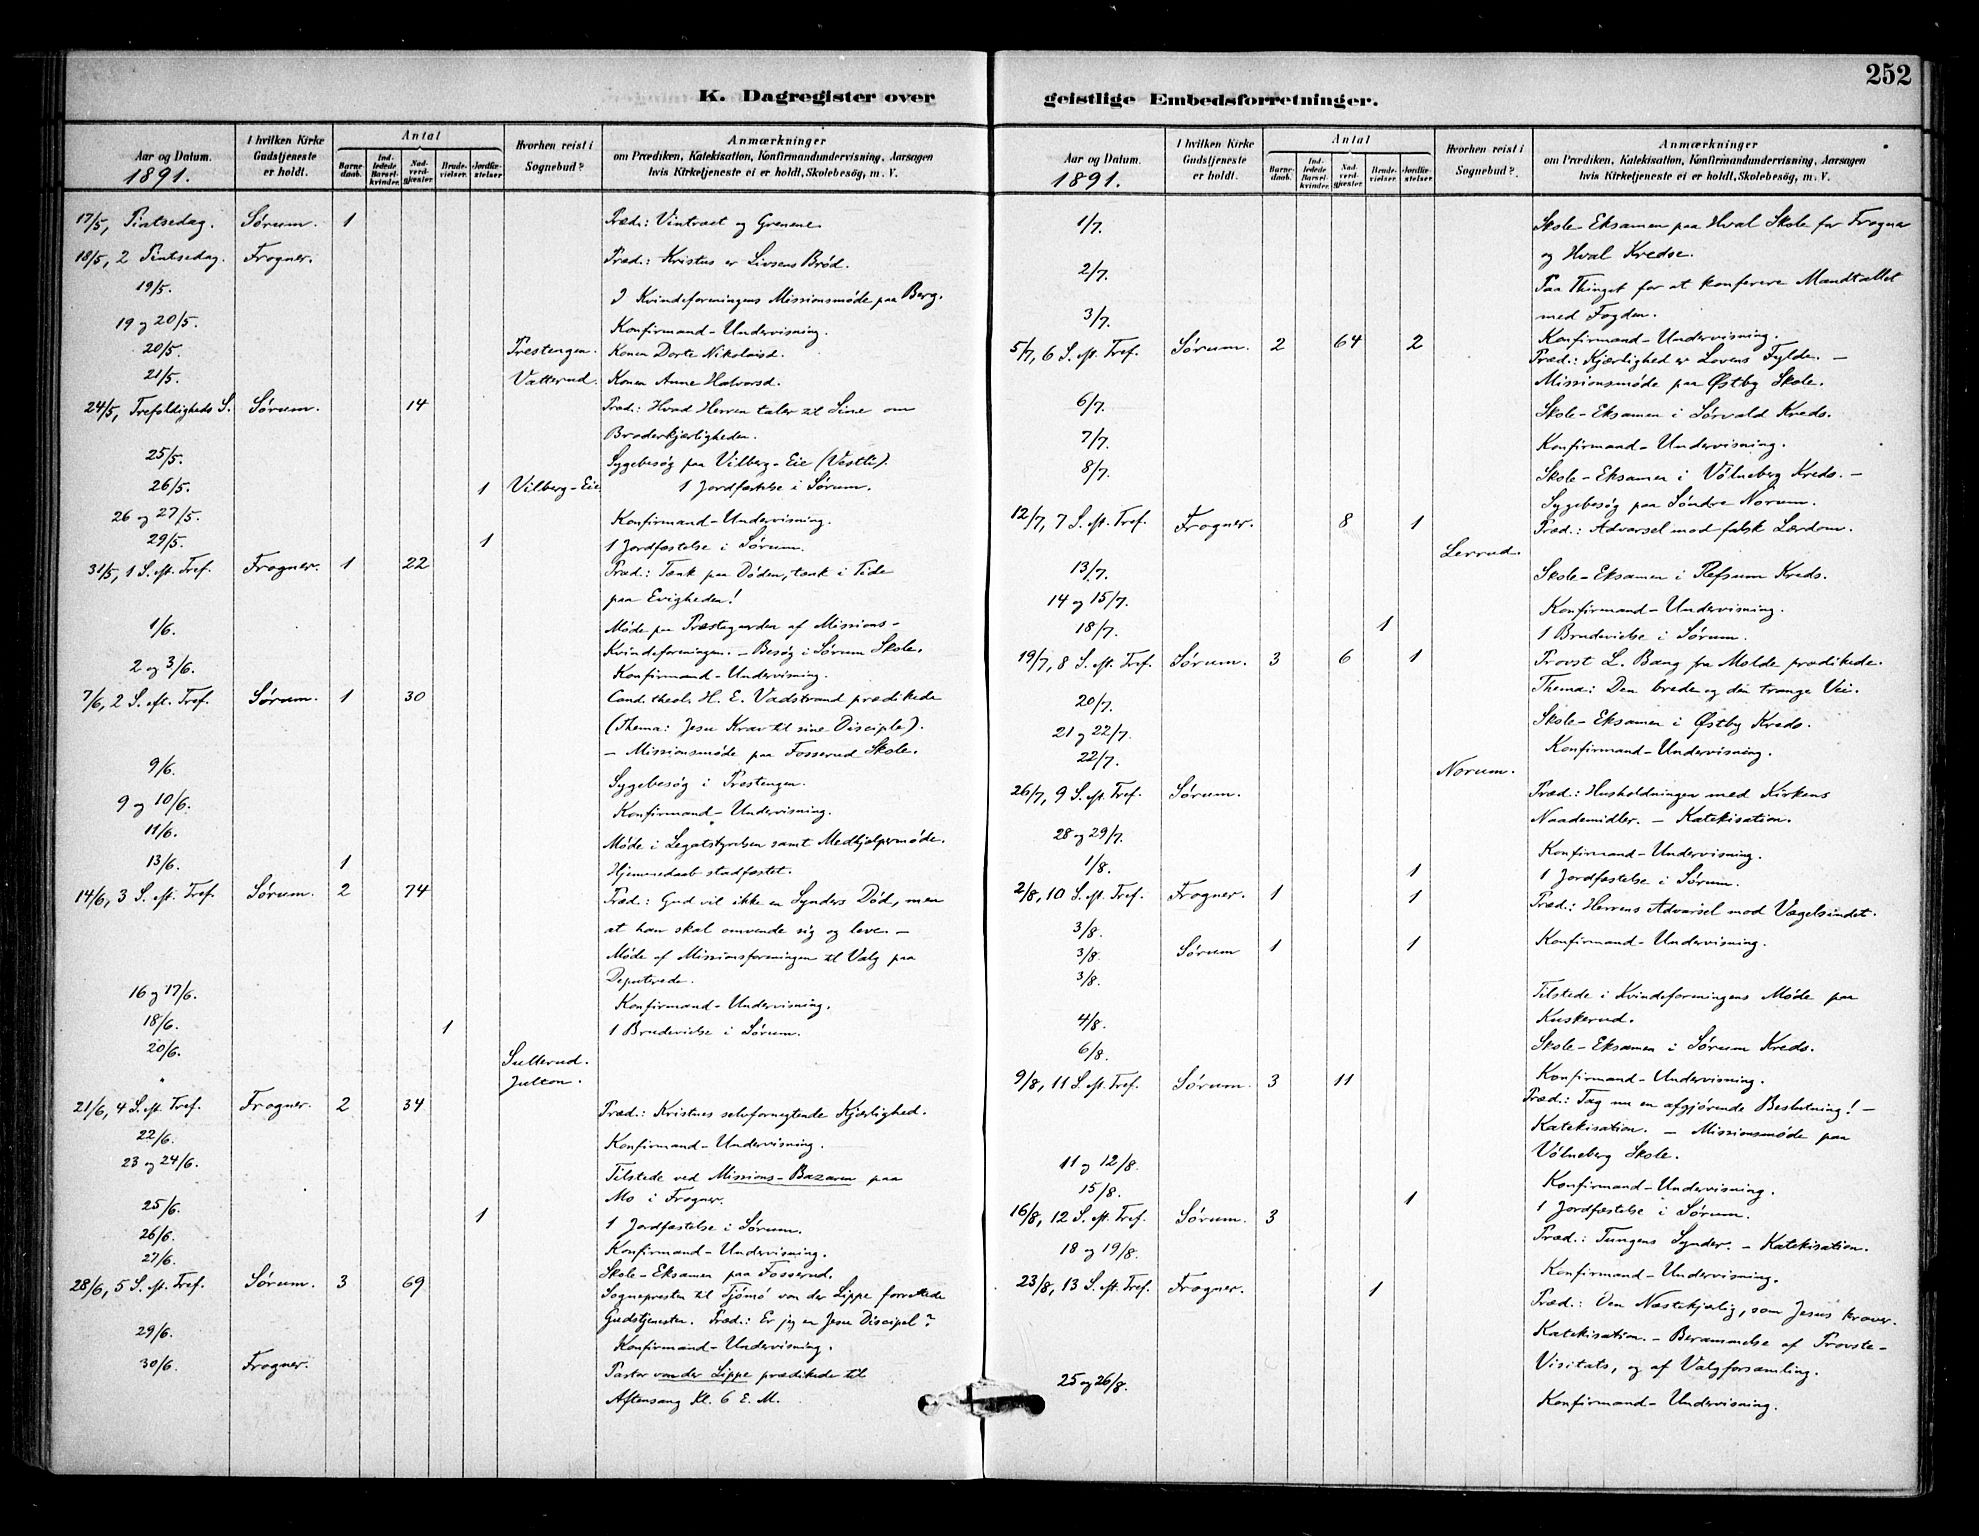 252
K. Dagregister over
Aar og Datum.
1891.
I hvilken Kirke Gudstjeneste er holdt.
Antal
Barnedaab.
Indledede Barselkvinder.
Nadverdgjæster.
Brudevielser.
Jordfæstelser.
Hvorhen reist i Sognebud?
Anmærkninger
om Prædiken, Katekisation, Konfirmandundervisning, Aarsagen
hvis Kirketjeneste ei er holdt, Skolebesøg, m. V.
17/5, Pintsedag. Sørum. 1 Præd.: Vintræet og Grenene.
18/5, 2 Pintsedag. Frogner. Præd.: Kristus er Livsens Brød.
19/5. I Kvindeforeningens Missionsmøde paa Berg.
19 og 20/5. Konfirmand-Undervisning.
20/5. Prestengen. Konen Dorte Nikolaisd.
21/5. Vatterud. Konen Anne Halvorsd.
24/5, Trefoldigheds S. Sørum. 14 Præd.: Hvad Herren taler til Sine om
Broderkjærligheden.
25/5. Sygebesøg paa Vilberg-Eie (Vestli).
26/5. 1 Vilberg-Eie 1 Jordfæstelse i Sørum.
26 og 27/5. Konfirmand-Undervisning.
29/5. 1 1 Jordfæstelse i Sørum.
31/5, 1 S. eft. Tref. Frogner. 1 22 Præd.: Tænk paa Døden, tænk i Tide
paa Evigheden!
1/6. Møde paa Præstegaarden af Missions-
Kvindeforeningen. - Besøg i Sørum Skole.
2 og 3/6. Konfirmand-Undervisning.
7/6, 2 S. eft. Tref. Sørum. 1 30 Cand. theol. H. E. Vadstrand prædikede
(Thema: Jesu Krav til sine Disciple).
- Missionsmøde paa Fosserud Skole.
9/6. Sygebesøg i Prestengen.
9 og 10/6. Konfirmand-Undervisning.
11/6. Møde i Legatstyrelsen samt Medhjælpermøde.
13/6. 1 Hjemmedaab stadfæstet.
14/6, 3 S. eft. Tref. Sørum. 2 74 Præd.: Gud vil ikke en Synders Død, men
at han skal omvende sig og leve. -
Møde af Missionsforeningen til Valg paa
Deputerede.
16 og 17/6. Konfirmand-Undervisning.
18/6. 1 1 Brudevielse i Sørum.
20/6. Sutterud.
" Julton.
21/6, 4 S. eft. Tref. Frogner. 2 34 Præd.: Kristnes selvfornegtende Kjærlighed.
22/6. Konfirmand-Undervisning.
23 og 24/6. Tilstede ved Missions-Bazaren paa
Mo i Frogner.
25/6. 1 1 Jordfæstelse i Sørum.
26/6. Konfirmand-Undervisning.
27/6. Skole-Eksamen paa Fosserud.
28/6, 5 S. eft. Tref. Sørum. 3 69 Sognepresten til Tjømø von der Lippe forrettede
Gudstjenesten. Præd.: Er jeg en Jesu Discipel?
29/6. Konfirmand-Undervisning.
30/6. Frogner. Pastor von der Lippe prædikede til
Aftensang Kl. 6 E. M.
geistlige Embedsforretninger.
Aar og Datum.
1891.
I hvilken Kirke Gudstjeneste er holdt.
Antal
Barnedaab.
Indledede Barselkvinder.
Nadverdgjæster.
Brudevielser.
Jordfæstelser.
Hvorhen reist i Sognebud?
Anmærkninger
om Prædiken, Katekisation, Konfirmandundervisning, Aarsagen
hvis Kirketjeneste ei er holdt, Skolebesøg, m. V.
1/7. Skole-Eksamen paa Hval Skole for Frogner
og Hval Kredse.
2/7. Paa Thinget for at konferere Mandtallet
med Fogden.
3/7. Konfirmand-Undervisning.
5/7, 6 S. eft. Tref. Sørum. 2 64 2 Præd.: Kjærlighed er Lovens Fylde. -
Missionsmøde paa Østby Skole.
6/7. Skole-Eksamen i Sørvald Kreds.
7/7. Konfirmand-Undervisning.
8/7. Skole-Eksamen i Vølneberg Kreds. -
Sygebesøg paa Søndre Norum.
12/7, 7 S. eft. Tref. Frogner. 8 1 Præd.: Advarsel mod falsk Lærdom.
Lerrud.
13/7. Skole-Eksamen i Refsum Kreds.
14 og 15/7. Konfirmand-Undervisning.
18/7. 1 1 Brudevielse i Sørum.
19/7, 8 S. eft. Tref. Sørum. 3 6 1 Provst L. Bang fra Molde prædikede.
Thema: Den brede og den trange Vei.
20/7. Skole-Eksamen i Østby Kreds.
21 og 22/7. Konfirmand-Undervisning.
22/7. Norum.
26/7, 9 S. eft. Tref. Sørum. Præd.: Husholdningen med Kirkens
Naademidler. - Katekisation.
28 og 29/7. Konfirmand-Undervisning.
1/8. 1 1 Jordfæstelse i Sørum.
2/8, 10 S. eft. Tref. Frogner. 1 1 Præd.: Herrens Advarsel mod Vægelsindet.
3/8. Konfirmand-Undervisning.
3/8. Sørum 1 1
3/8. Tilstede i Kvindeforeningens Møde paa
Kuskerud.
4/8. Skole-Eksamen i Sørum Kreds.
6/8. Konfirmand-Undervisning.
9/8, 11 S. eft. Tref. Sørum. 3 11 Præd.: Tag nu en afgjørende Beslutning! -
Katekisation. - Missionsmøde paa
Vølneberg Skole.
11 og 12/8. Konfirmand-Undervisning.
15/8. 1 1 Jordfæstelse i Sørum.
16/8, 12 S. eft. Tref. Sørum. 3 Præd.: Tungens Synder. - Katekisation.
18 og 19/8. Konfirmand-Undervisning.
23/8, 13 S. eft. Tref. Frogner. 1 Præd.: Den Næstekjærlig, som Jesus kræver.
Katekisation. - Berammelse af Provste-
Visitats, og af Valgforsamling.
25 og 26/8. Konfirmand-Undervisning.